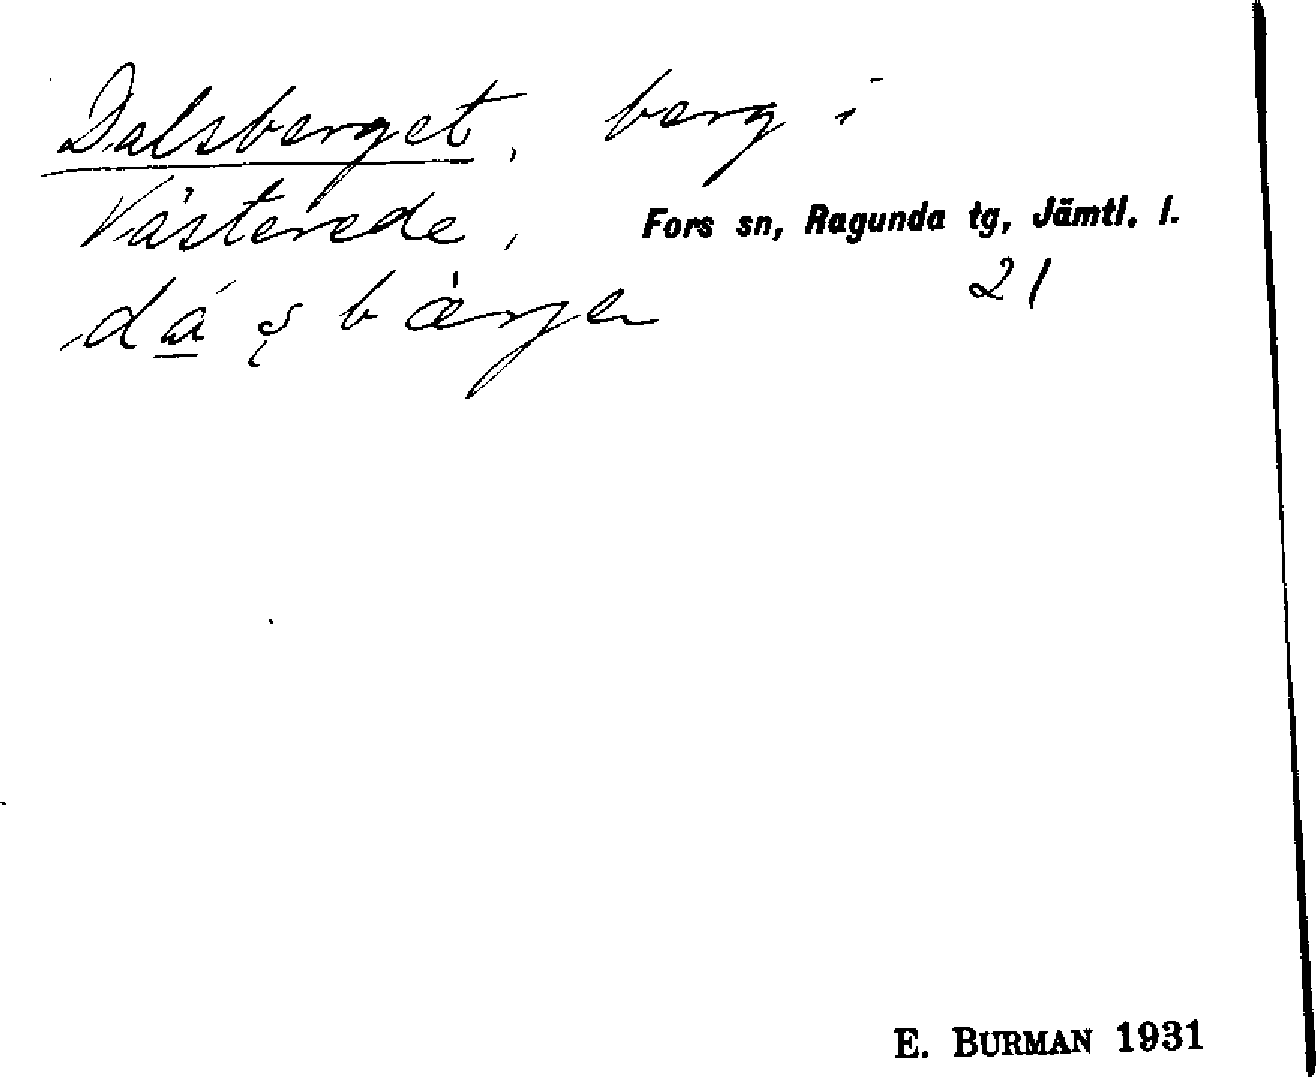 Dalsberget, berg i
Västerede,
Fors sn, Ragunda tg, Jämtl. l.
21
E. BURMAN 1931